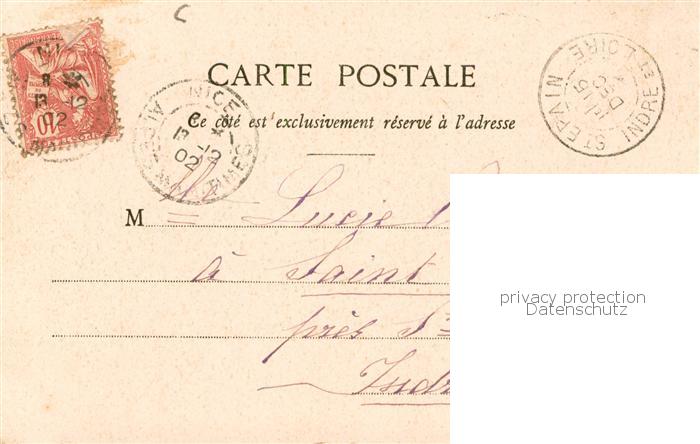 CARTE POSTALE
Ce côté est exclusivement réservé à l'adresse
NICE
ALPES MARITIMES
13 -12
02
ST EPAIN
INDRE ET LOIRE
10
M lle Lucie
à Saint
près S
Indr
privacy protection
Datenschutz